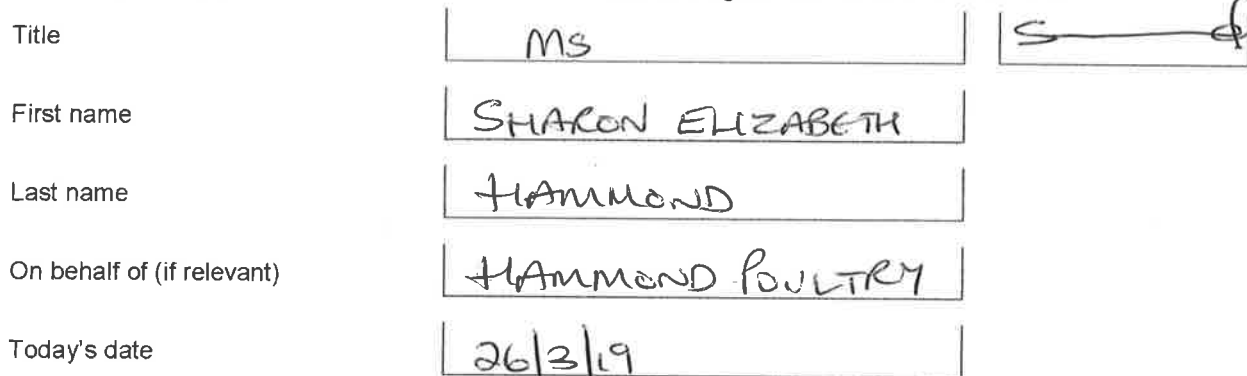 Title MS
First name SHARON ELIZABETH
Last name HAMMOND
On behalf of (if relevant) HAMMOND POULTRY
Today's date 26/3/19